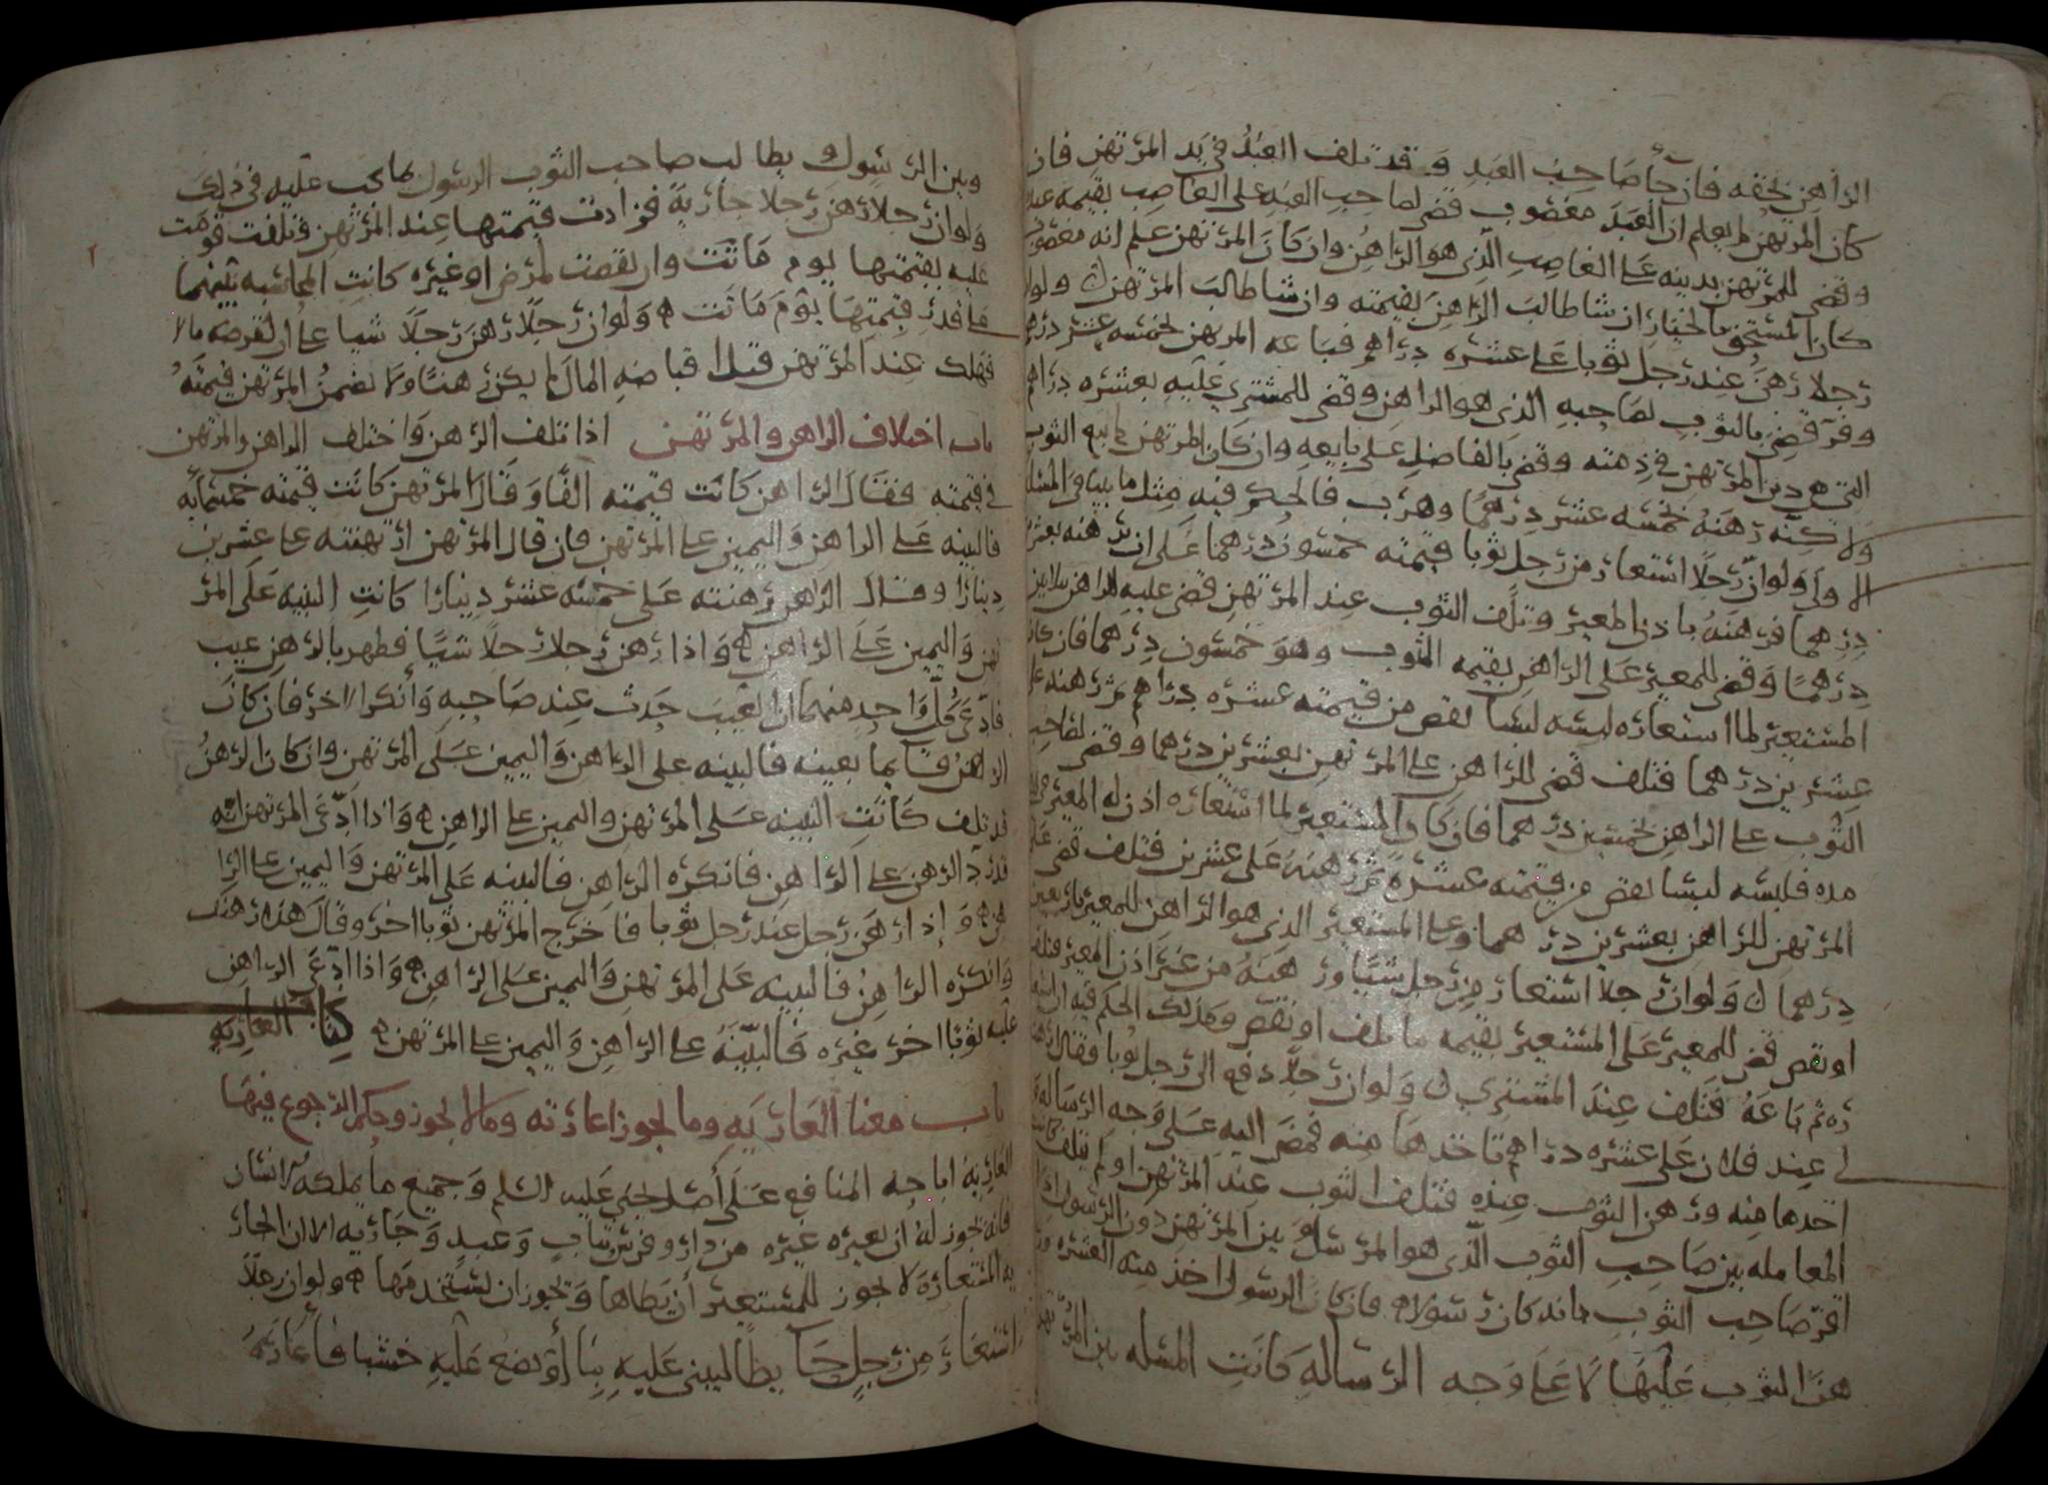 الراهن بحقه فان جا صاحب العبد وقد تلف العبد في يد المرتهن فان
كان المرتهن لم يعلم ان العبد مغصوب قضي لصاحب العبد على الغاصب بقيمه عبده
وقضي للمرتهن بدينه على الغاصب الذي هو الراهن وان كان المرتهن علم انه مغصوب
كان المستحق بالخيار ان شا طالب الراهن بقيمته وان شا طالب المرتهن ولو ان
رجلا رهن عند رجل ثوبا على عشره دراهم فباعه المرتهن بخمسه عشر درهما
وفر قضي بالثوب لصاحبه الذي هو الراهن وقضي للمشتري عليه بعشره دراهم
التي هي دين المرتهن في ذمته وقضي بالفاضل على بايعه وان كان المرتهن لم يبع الثوب
ولاكنه رهنه بخمسه عشر درهما وهرب فالحكم فيه مثل ما بينا في المسله
الاولى ولو ان رجلا استعار من رجل ثوبا قيمته خمسون درهما على ان يرهنه بعشرين
درهما فرهنه باذن المعير وتلف الثوب عند المرتهن قضي عليه للراهن بثلاثين
درهما وقضي للمعير على الراهن بقيمه الثوب وهو خمسون درهما فان كان
المستعير لما استعاره لبسه لبسا نقص من قيمته عشره دراهم ثم رهنه على
عشرين درهما فتلف قضي للراهن على المرتهن بعشرين درهما وقضي لصاحب
الثوب على الراهن بخمسين درهما فان كان المستعير لما استعاره اذن له المعير
مده فلبسه لبسا نقص من قيمته عشره ثم رهنه على عشرين فتلف قضي على
المرتهن للراهن بعشرين درهما وعلى المستعير الذي هو الراهن للمعير باربعين
درهما ولو ان رجلا استعار من رجل شيا ورهنه من غير اذن المعير فتلف
او نقص قضي للمعير على المستعير بقيمه ما تلف او نقص وكذلك الحكم فيه ان
ثم باعه فتلف عند المشتري ولو ان رجلا دفع الى رجل ثوبا فقال
لي عند فلان على عشره دراهم تاخذها منه فمضى اليه على وجه الرساله
اخذها منه ورهن الثوب عنده فتلف الثوب عند المرتهن او لم يتلف
المعامله بين صاحب الثوب الذي هو المرسل وبين المرتهن دون الرسول اذا
اقر صاحب الثوب بانه كان رسولا فان كان الرسول اخذ منه العشره
هذا الثوب عليها لا على وجه الرساله كانت المسله بين
وبين الرسول يطالب صاحب الثوب الرسول بما يجب عليه في ذلك
ولو ان رجلا رهن رجلا جاريه فزادت قيمتها عند المرتهن فتلفت قومت
عليه بقيمتها يوم ماتت وان نقصت لمرض او غيره كانت المحاسبه بينهما
على قدر قيمتها يوم ماتت ولو ان رجلا رهن رجلا شيا على ان يقرضه مالا
فهلك عند المرتهن قبل اقباضه المال لم يكن رهنا ولا يضمن المرتهن قيمته
باب اختلاف الراهن والمرتهن اذا تلف الرهن واختلف الراهن والمرتهن
في قيمته فقال الراهن كانت قيمته الفا وقال المرتهن كانت قيمته خمسمائه
فالبينه على الراهن واليمين على المرتهن فان قال المرتهن ارتهنته على عشرين
دينارا وقال الراهن رهنته على خمسه عشر دينارا كانت البينه على المر
تهن واليمين على الراهن واذا رهن رجلا رجلا شيا فظهر بالرهن عيب
فادعى كل واحد منهما ان العيب حدث عند صاحبه وانكر الاخر فان كان
الرهن قايما بعينه فالبينه على الراهن واليمين على المرتهن وان كان الرهن
قد تلف كانت البينه على المرتهن واليمين على الراهن واذا ادعى المرتهن انه
قد رد الرهن على الراهن فانكره الراهن فالبينه على المرتهن واليمين على الرا
هن واذا رهن رجل عند رجل ثوبا فاخرج المرتهن ثوبا اخر وقال هذا رهنك
وانكره الراهن فالبينه على المرتهن واليمين على الراهن واذا ادعى الراهن
عليه ثوبا اخر غيره فالبينه على الراهن واليمين على المرتهن كتاب العاريه
باب معنا العاريه وما يجوز اعارته وما لا يجوز وحكم الرجوع فيها
العاريه اباحه المنافع على اصل يحيى عليه السلم وجميع ما يملكه الانسان
فانه يجوز له ان يعيره غيره من دار وفرش ثياب وعبد وجاريه الا ان الجار
يه المستعاره لا يجوز للمستعير ان يطاها ويجوز ان يستخدمها ولو ان رجلا
استعار من رجل حايطا ليبني عليه بنا او يضع عليه خشبا فاعاره